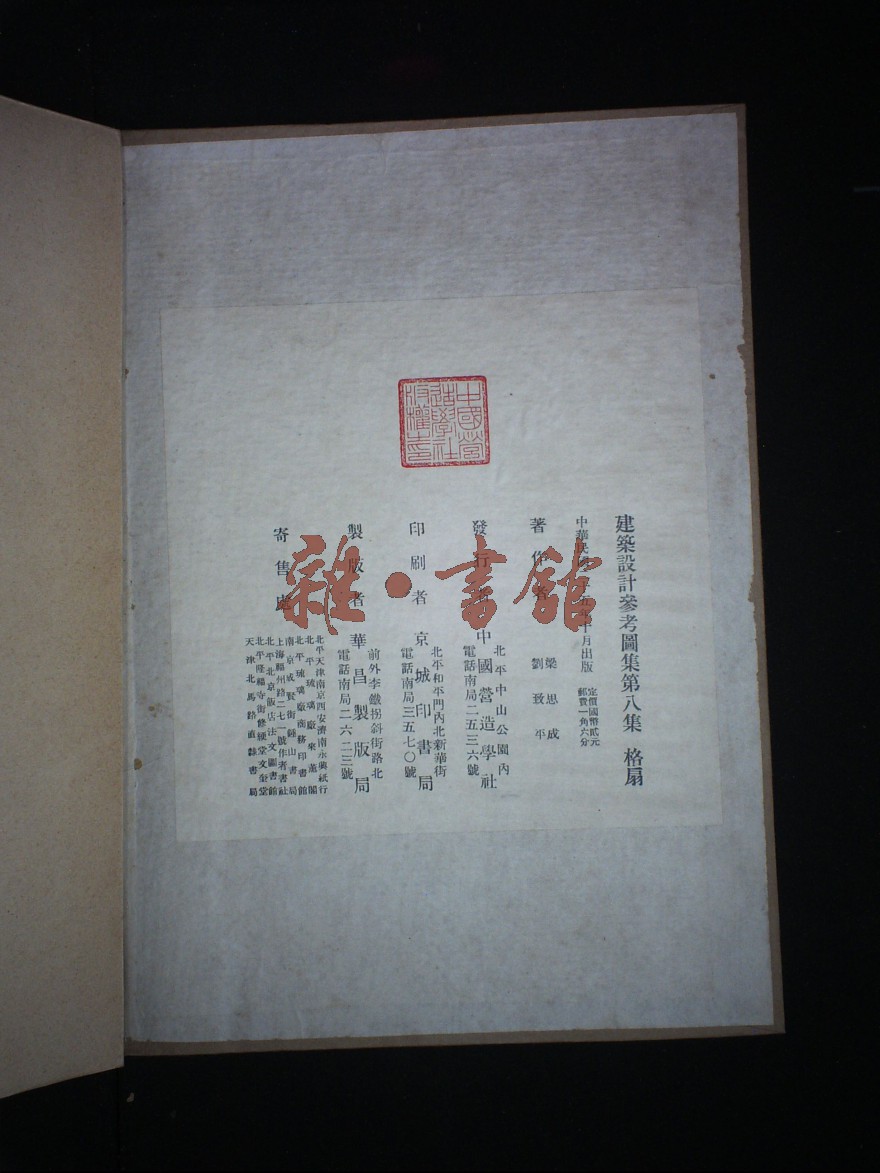 建築設計參考圖集第八集 格扇
中華民國二十五年十月出版
定價國幣貳元
郵費一角六分
著作者
梁思成
劉致平
發行者
北平中山公園內
中國營造學社
電話南局二五三六號
印刷者
北平和平門內北新華街
京城印書局
電話南局三五七〇號
製版者
前外李鐵拐斜街路北
華昌製版局
電話南局二六二三號
寄售處
北平天津南京西安濟南永興紙行
北平琉璃廠來薰閣
北平琉璃廠商務印書館
南京成賢街鍾山書局
上海福州路二七一號作者書社
北平北京飯店法文圖書館
北平隆福寺街修綆堂文奎堂
天津北馬路直隸書局
中國營造學社版權之印
雜·書館